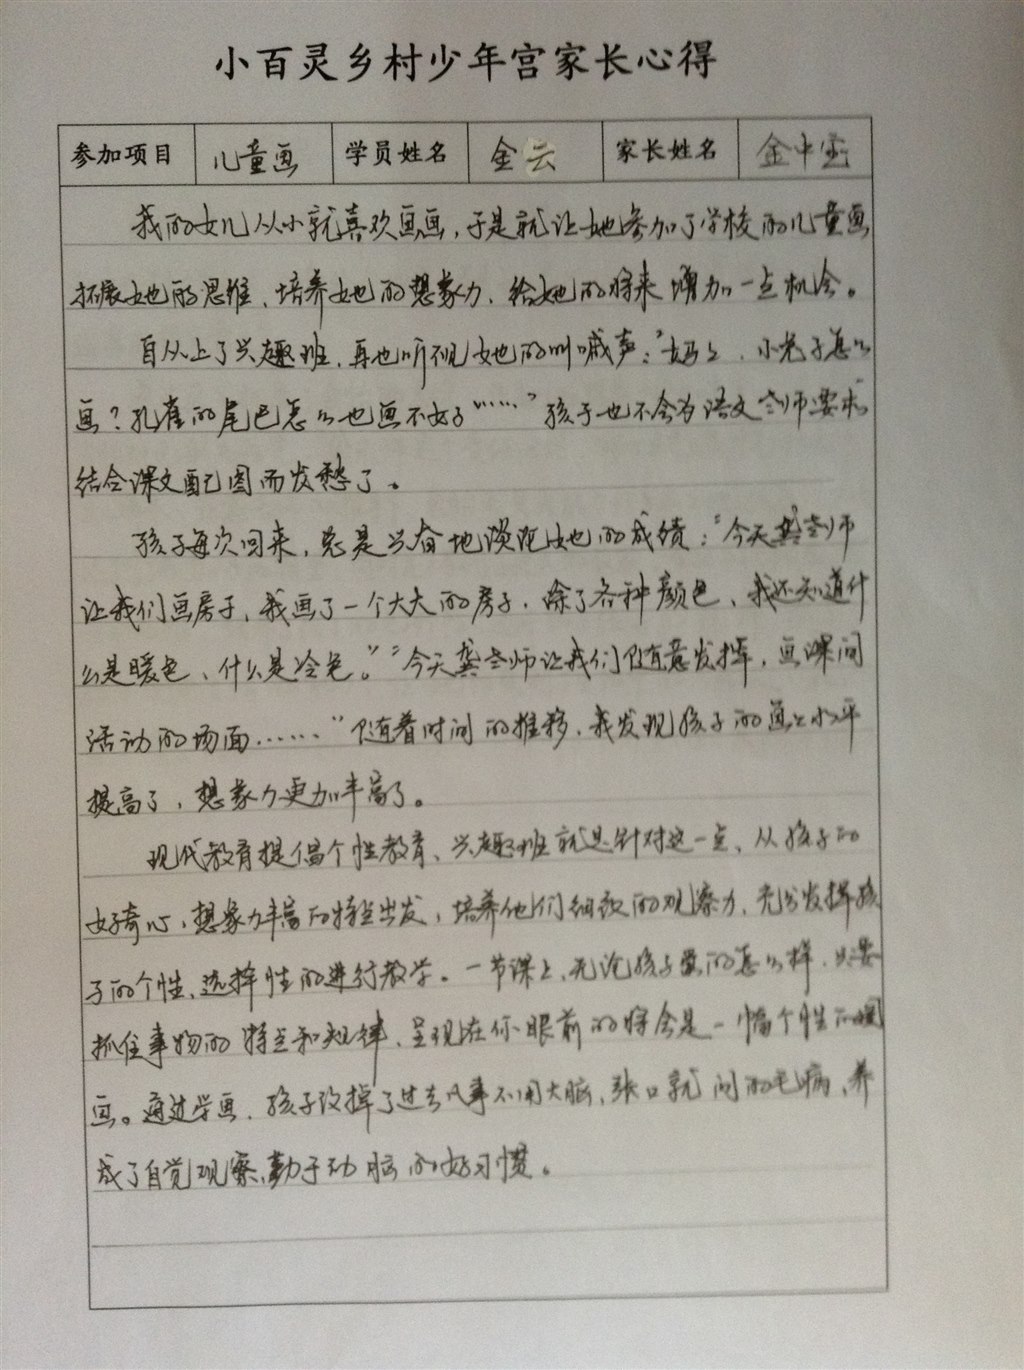 小百灵乡村少年宫家长心得
参加项目 儿童画 学员姓名 金云 家长姓名 金中
我的女儿从小就喜欢画画，于是就让她参加了学校的儿童画
拓展她的思维、培养她的想象力、给她的将来增加一点机会。
自从上了兴趣班，再也听不见她的叫喊声：“妈妈，小兔子怎么
画？孔雀的尾巴怎么也画不好……”孩子也不会为语文老师要求
结合课文配图而发愁了。
孩子每次回来，总是兴奋地谈论她的成绩：“今天龚老师
让我们画房子，我画了一个大大的房子，除了各种颜色、我还知道什
么是暖色、什么是冷色。”“今天龚老师让我们随意发挥，画课间
活动的场面……”随着时间的推移，我发现孩子的画画水平
提高了，想象力更加丰富了。
现代教育提倡个性教育、兴趣班就是针对这一点、从孩子的
好奇心，想象力丰富的特点出发，培养他们细致的观察力，充分发挥孩
子的个性、选择性的进行教学。一节课上，无论孩子画的怎么样，只要
抓住事物的特点和规律，呈现在你眼前的将会是一幅个性的
画。通过学画，孩子改掉了过去凡事不用大脑，张口就问的毛病，养
成了自觉观察，勤于动脑的好习惯。